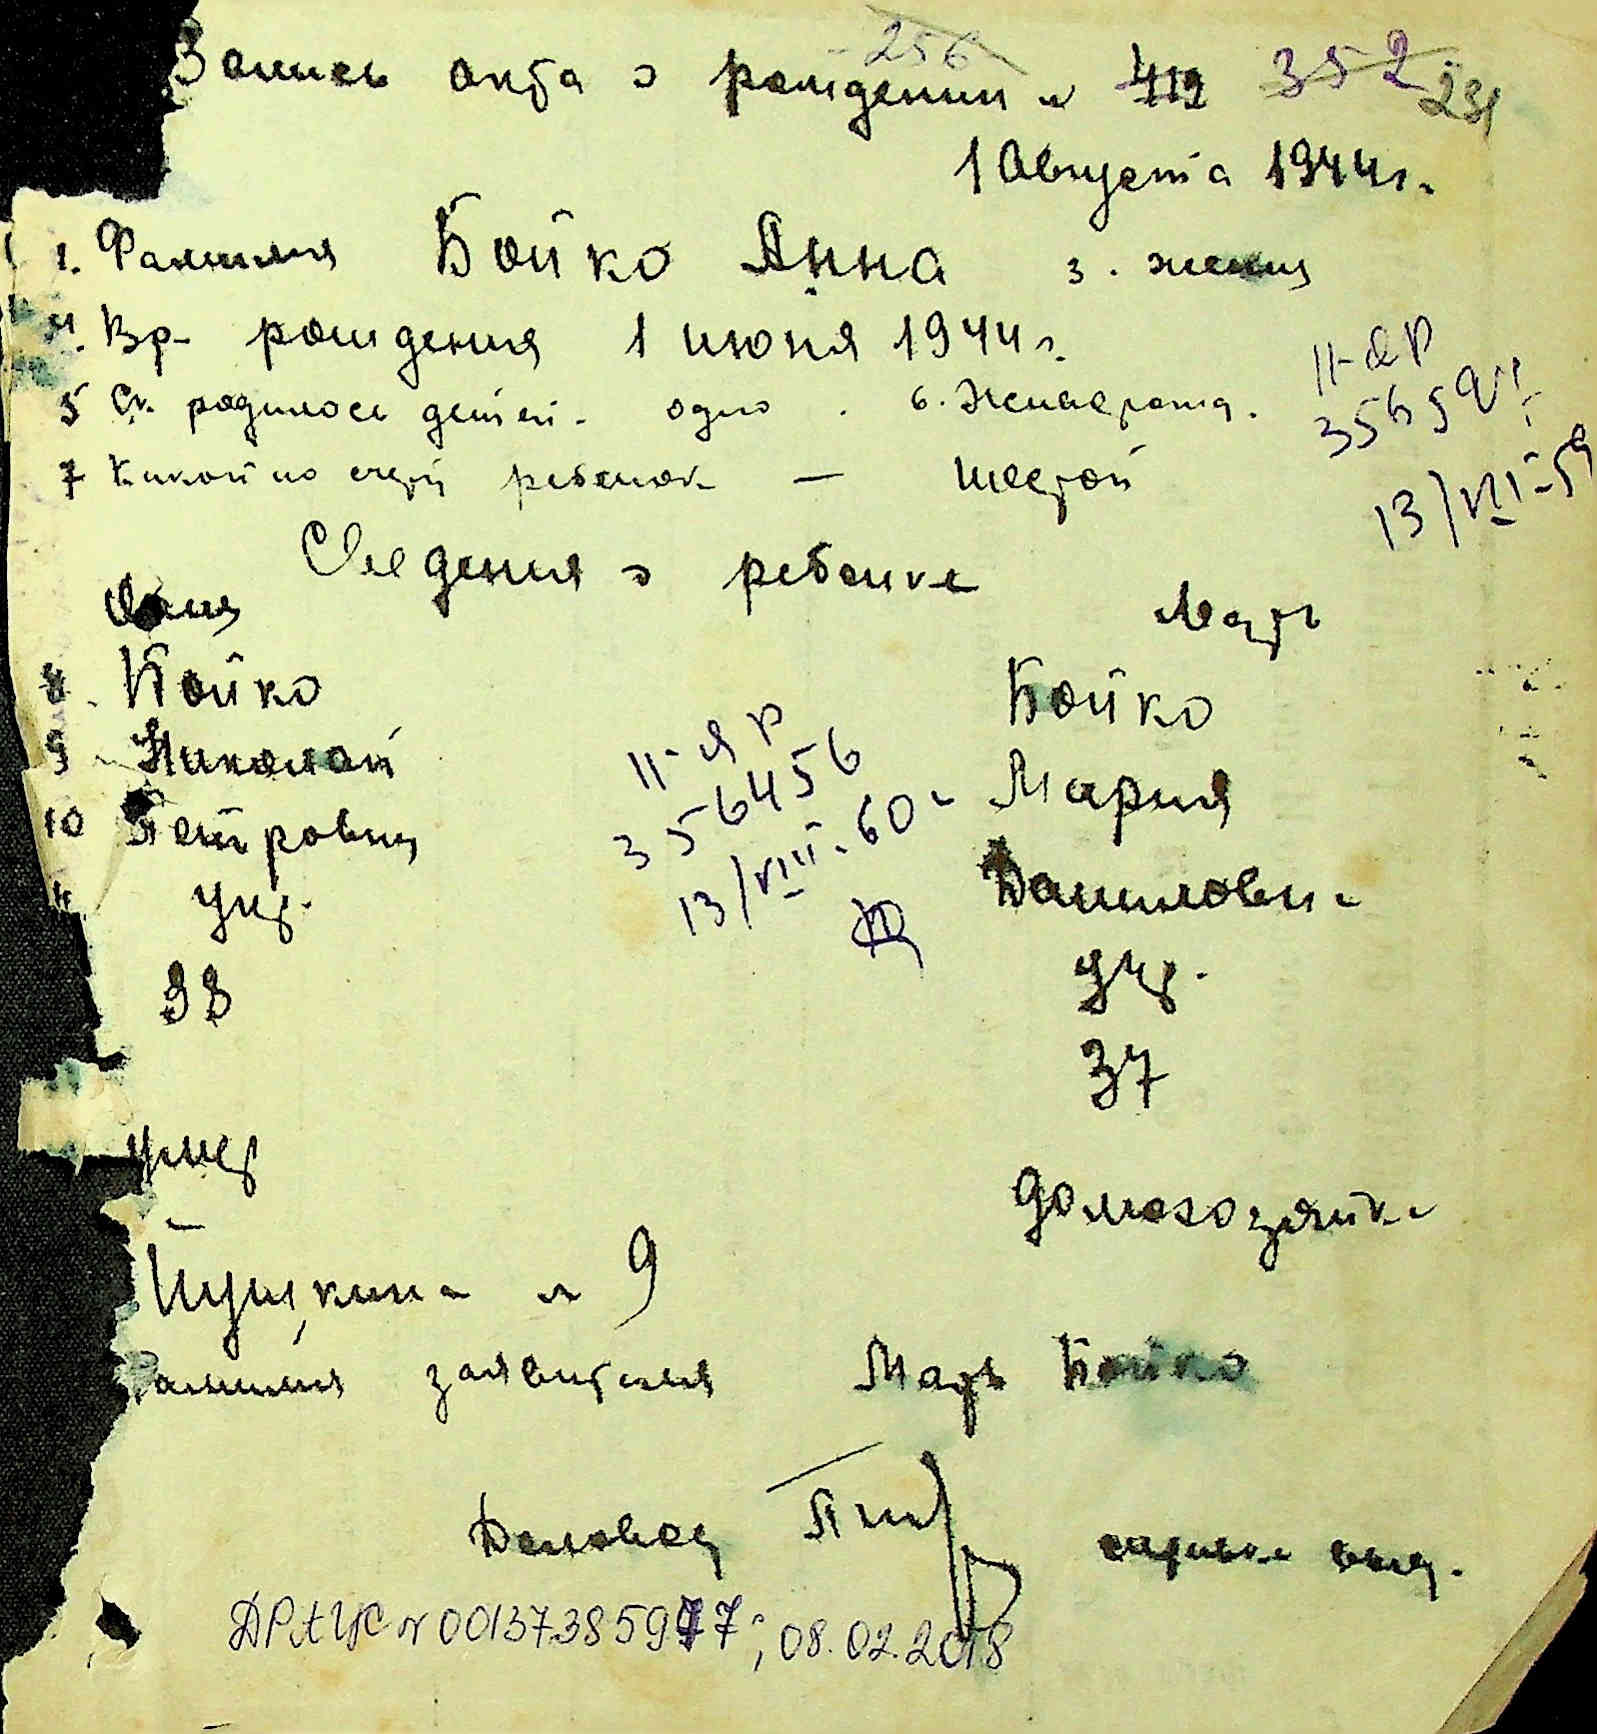 256
Запись акта о рождении № 412 352 231
1 Августа 1944 г.
1. Фамилия Бойко Анна 3. женщ
4. Вр. рождения 1 июня 1944 г.
5 Ск. родилось детей. одно. 6. Живаерожд.
7 Какой по счету ребенок — шестой
II-ЯР
13/VIII-59
Сведения о ребенке
Отец Мать
8. Бойко Бойко
9 Николай Мария
10 Петрович Даниловна
укр. укр.
33 37
II-ЯР
356456
13/VIII-60г
умер домохозяйка
Пушкина № 9
Фамилия заявителя Мать Бойко
Деловод
ДРАЦС № 00137385977; 08.02.2018